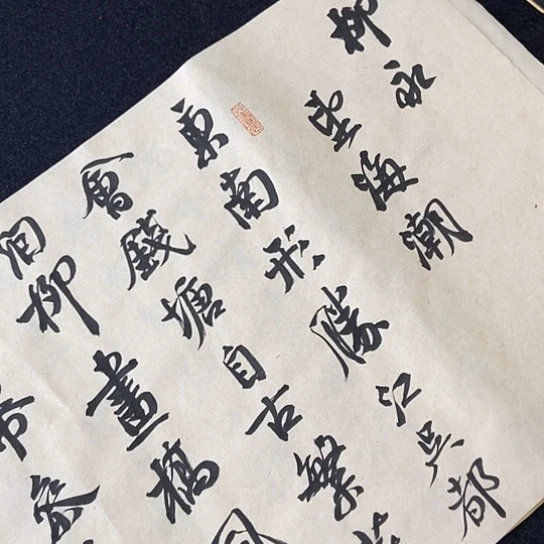 柳永
望海潮
東南形勝江吳都
會錢塘自古繁華
烟柳畫橋風